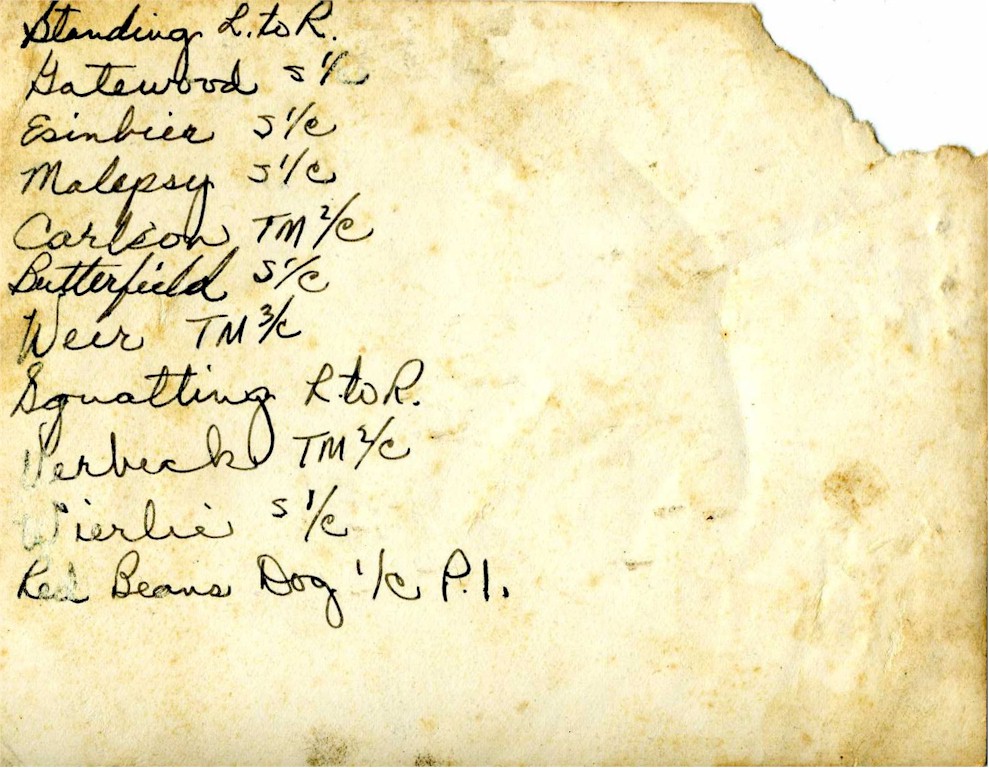 Standing L. to R.
Gatewood S 1/c
Esinbier S 1/c
Malepsy S 1/c
Carlson TM 2/c
Butterfield S 1/c
Weir TM 3/c
Squatting L. to R.
Verbeck TM 2/c
Wierlie S 1/c
Red Beans Dog 1/c P.I.